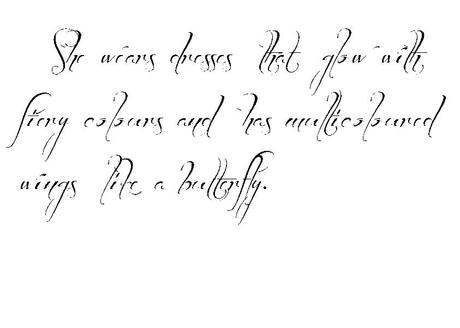 She wears dresses that glow with
fiery colours and has multicoloured
wings like a butterfly.